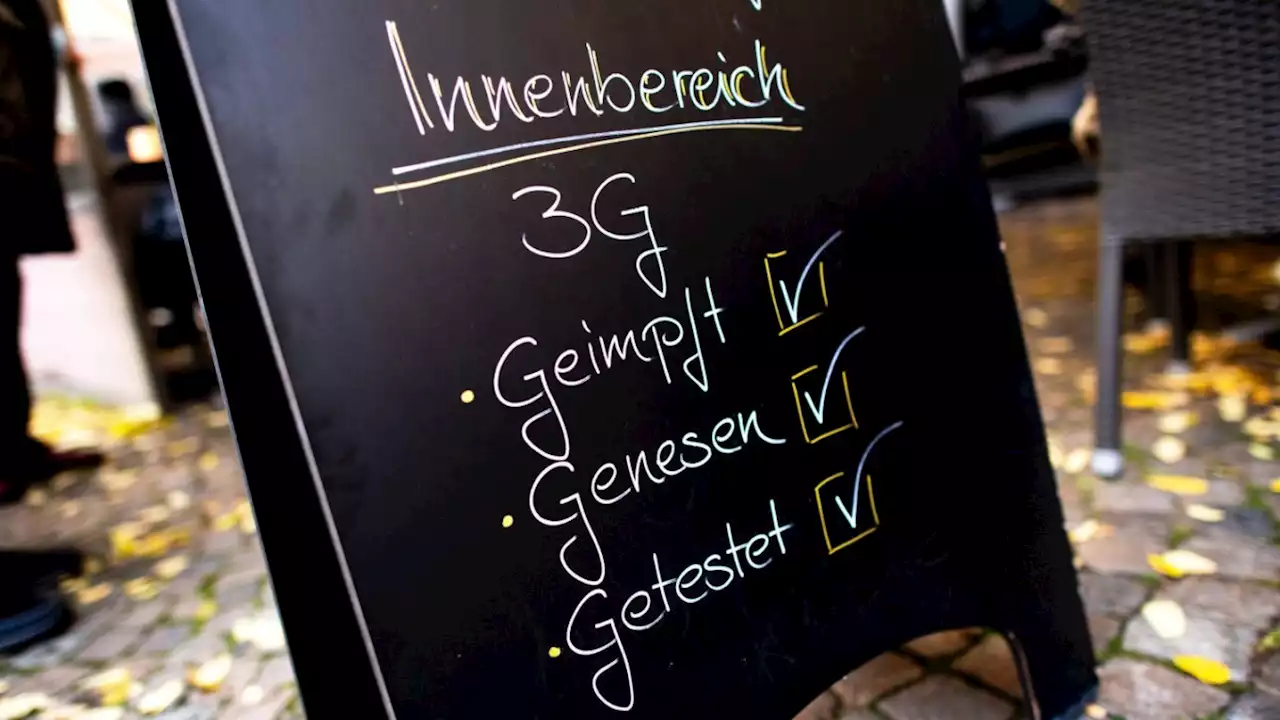 Innenbereich
3G
• Geimpft ☑
• Genesen ☑
• Getestet ☑